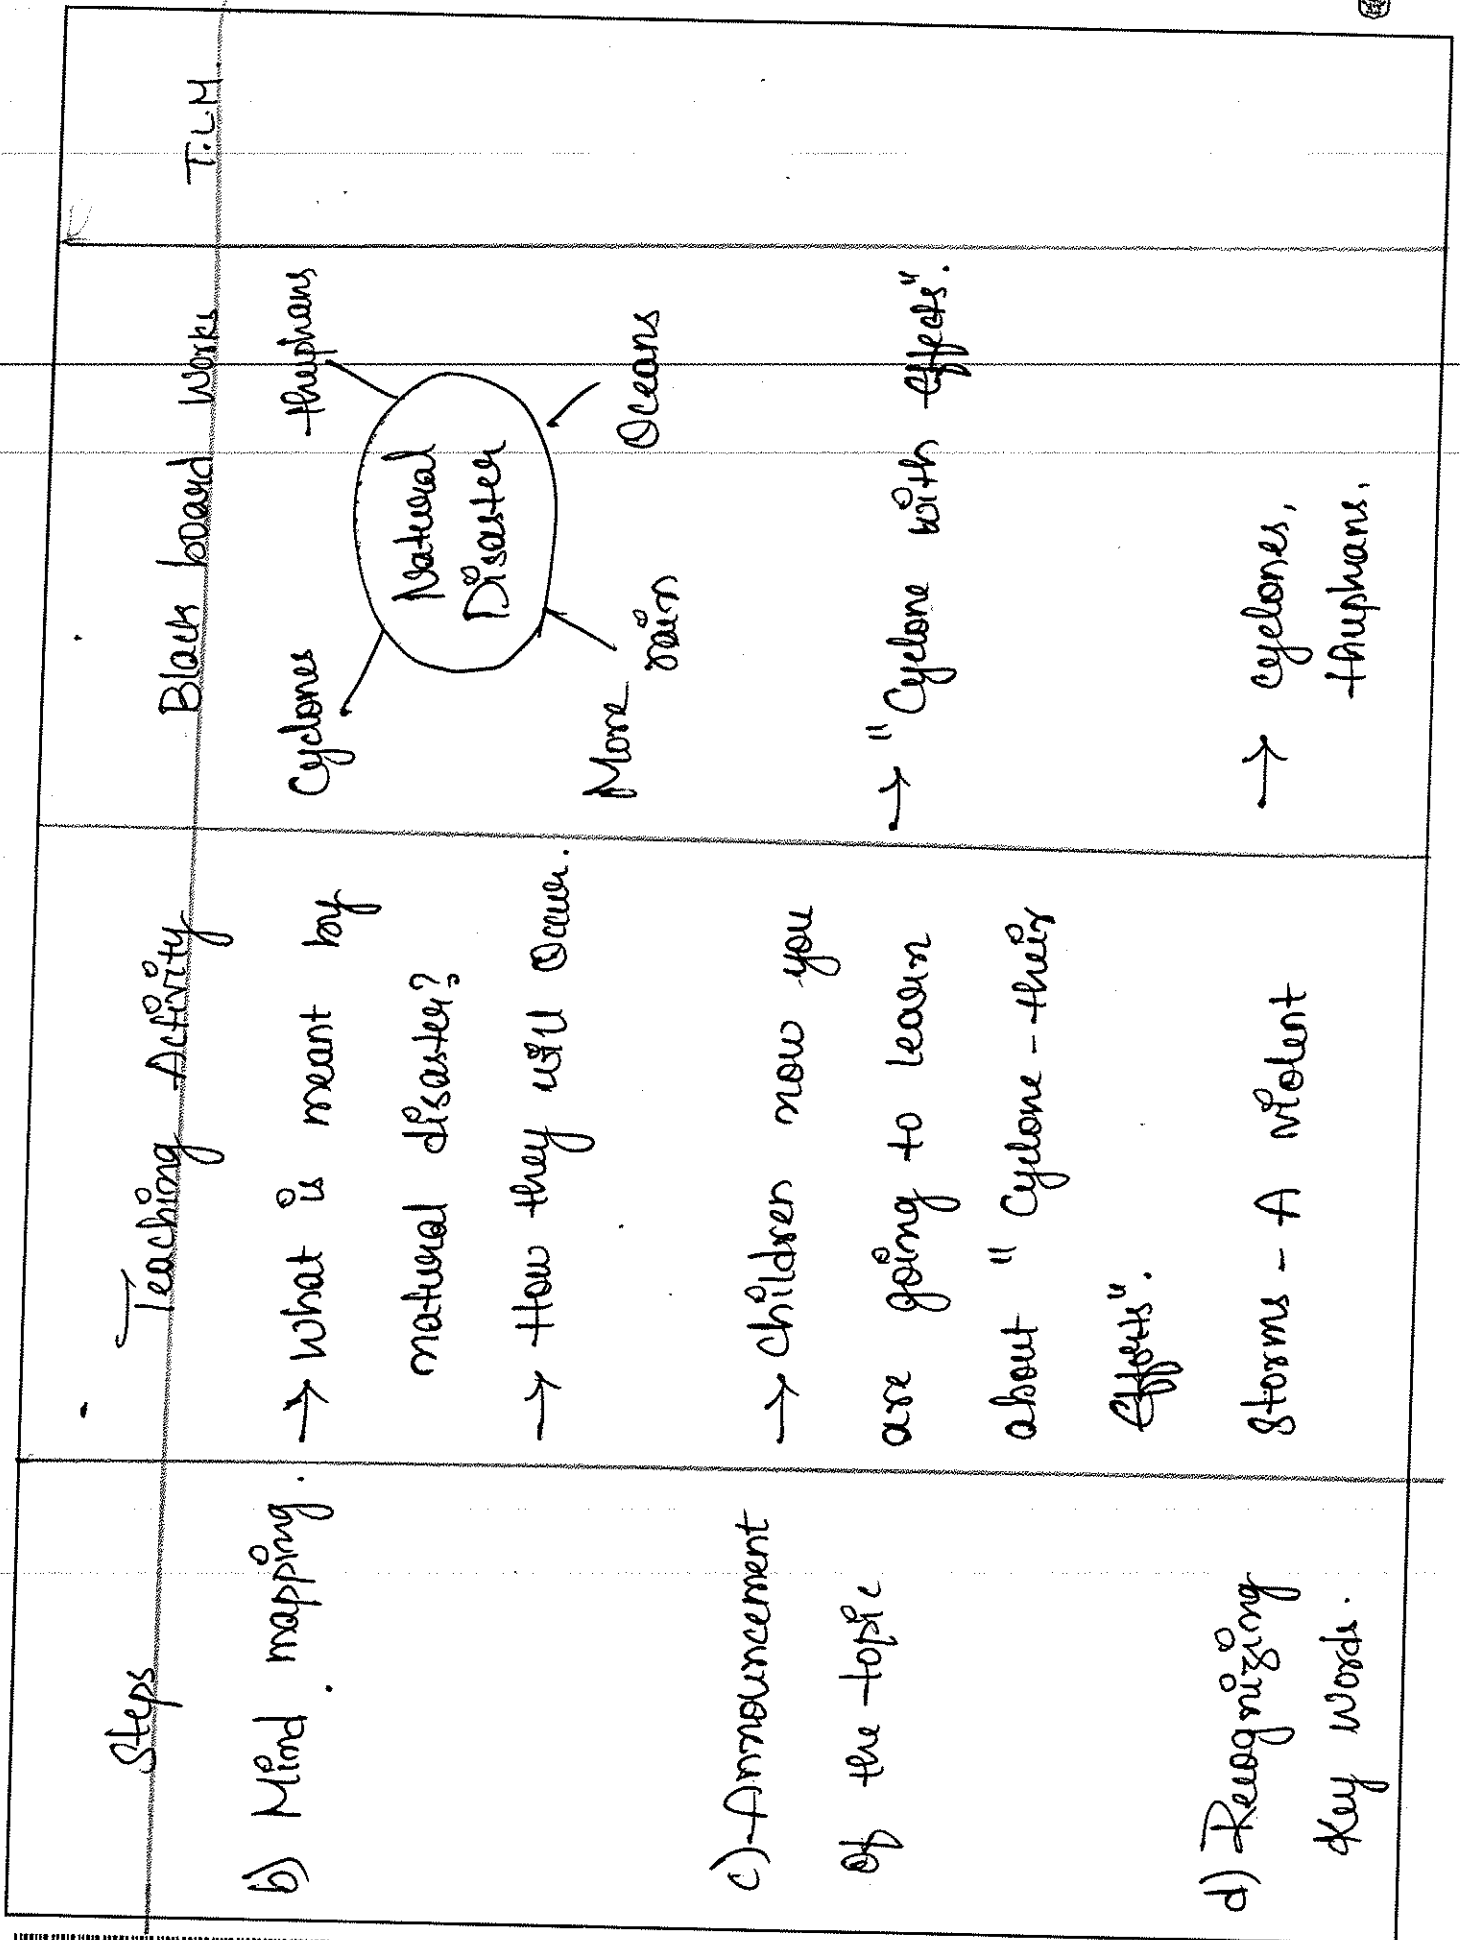 Steps Teaching Activity Black board Works T.L.M.
b) Mind mapping.
→ What is meant by
natural disaster?
→ How they will occur.
Cyclones thuphans
Natural
Disaster
More
rain
Oceans
c) Announcement
of the topic
→ Children now you
are going to learn
about "Cyclone - their
Effects".
→ "Cyclone with effects".
d) Recognizing
Key Words.
Storms - A violent
→ cyclones,
thuphans.